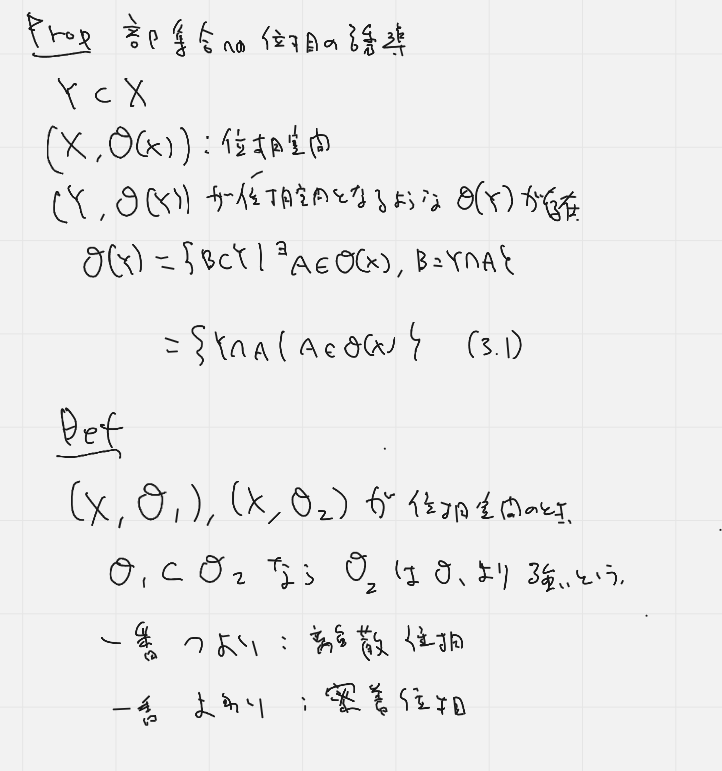 Prop 部集合への位相の誘導
Y ⊂ X
(X, O(X)) : 位相空間
(Y, O(Y)) が位相空間となるような O(Y) が存在
O(Y) = {B⊂Y | ∃A∈O(X), B=Y∩A}
= {Y∩A | A∈O(X)} (3.1)
Def
(X, O₁), (X, O₂) が位相空間のとき、
O₁ ⊂ O₂ なら O₂ は O₁ より強いという.
一番 つよい : 離散位相
一番 よわい : 密着位相